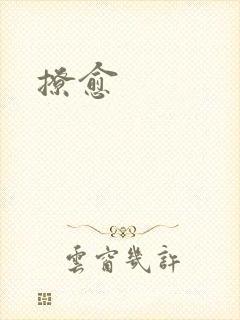 撩愈
雲窗幾許